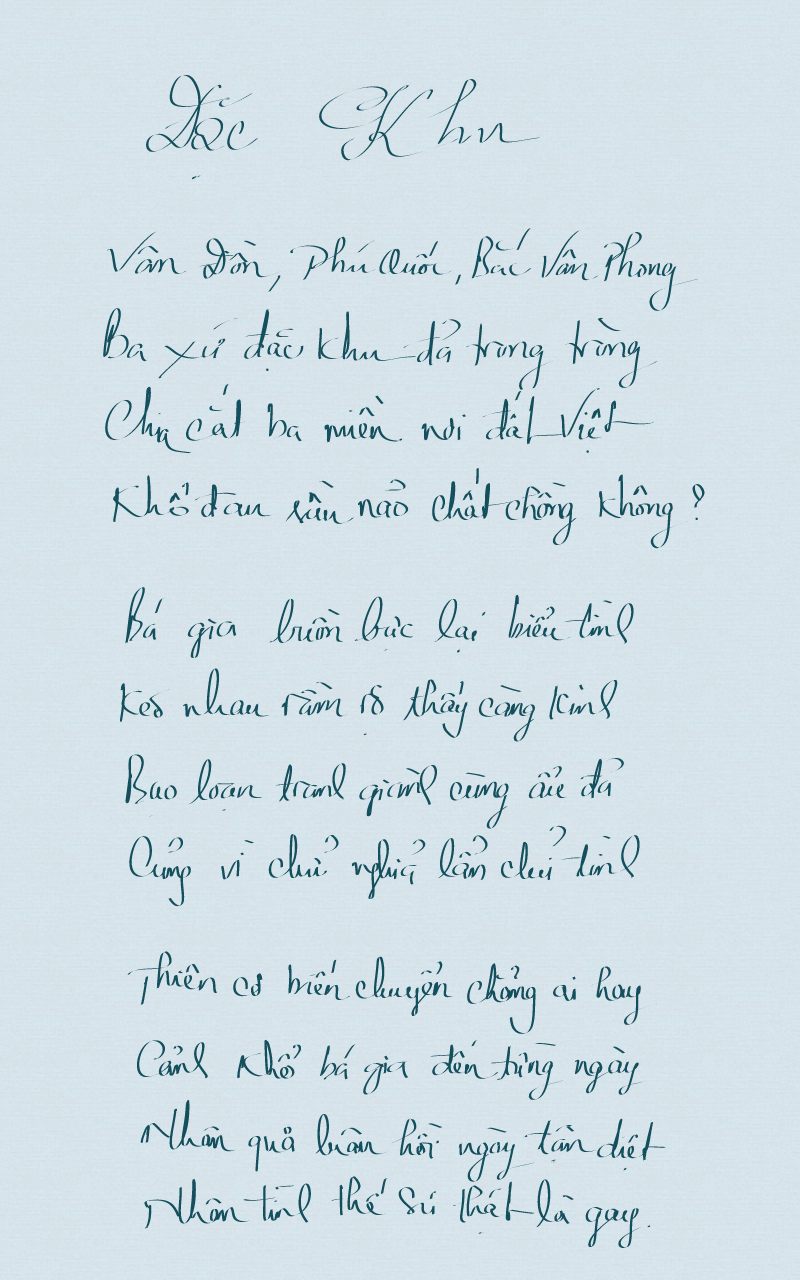 Đặc Khu
Vân Đồn, Phú Quốc, Bắc Vân Phong
Ba xứ đặc khu đả tròng tròng
Chia cắt ba miền nơi đất Việt
Khổ đau sầu nảo chất chồng không ?
Bá gia buồn bực lại biểu tình
Kéo nhau rầm rộ thấy càng kinh
Bạo loạn tranh giành cùng ẩu đả
Cũng vì chủ nghỉa lẩn chử tình
Thiên cơ biến chuyển chẳng ai hay
Cảnh khổ bá gia đến từng ngày
Nhân quả luân hồi ngày tận diệt
Nhân tình thế sự thật là gay.